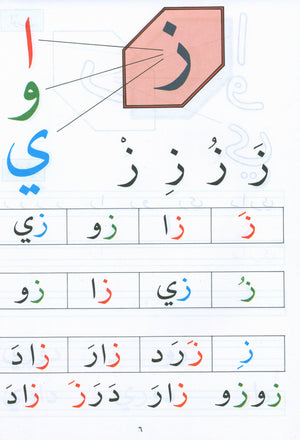 ا
ز
و
ي
زَ زُ زِ زْ
زَ زا زو زي
زُ زي زا زو
زِ زَرَد زارَ زادَ
زوزو زارَ دَرَزَ زادَ
٦